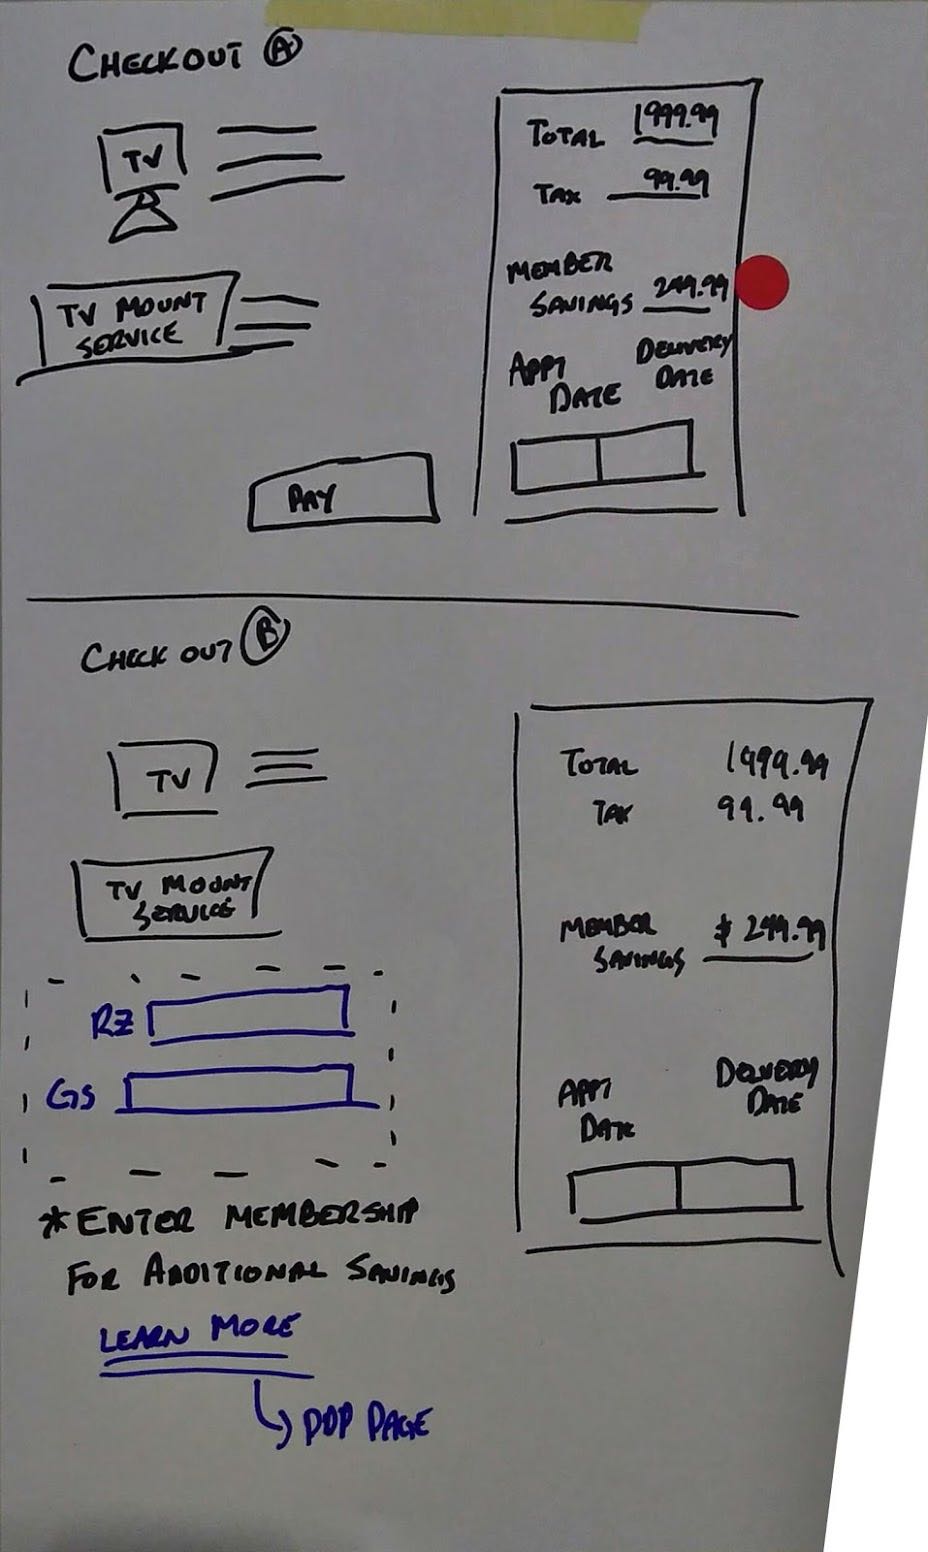 CHECKOUT A
TV
TV MOUNT
SERVICE
PAY
TOTAL 1999.99
TAX 99.99
MEMBER
SAVINGS 299.99
APPT DELIVERY
DATE DATE
CHECK OUT B
TV
TV MOUNT
SERVICE
RZ
GS
*ENTER MEMBERSHIP
FOR ADDITIONAL SAVINGS
LEARN MORE
PDP PAGE
TOTAL 1999.99
TAX 99.99
MEMBER
SAVINGS $299.99
APPT DELIVERY
DATE DATE